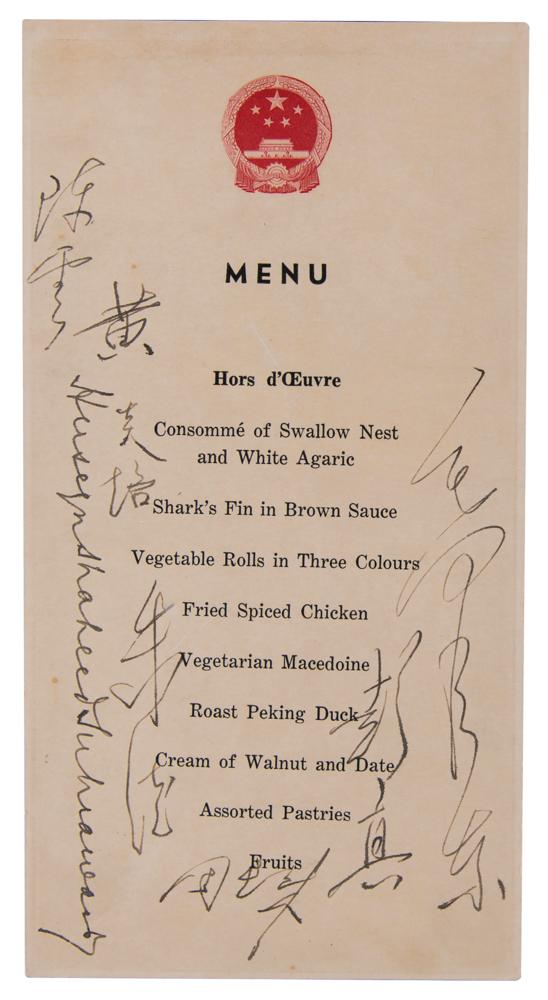 MENU
Hors d'Œuvre
Consommé of Swallow Nest
and White Agaric
Shark's Fin in Brown Sauce
Vegetable Rolls in Three Colours
Fried Spiced Chicken
Vegetarian Macedoine
Roast Peking Duck
Cream of Walnut and Date
Assorted Pastries
Fruits
黄炎培
Huseyn Shaheed Suhrawardy
朱德
周恩来
彭真
毛泽东